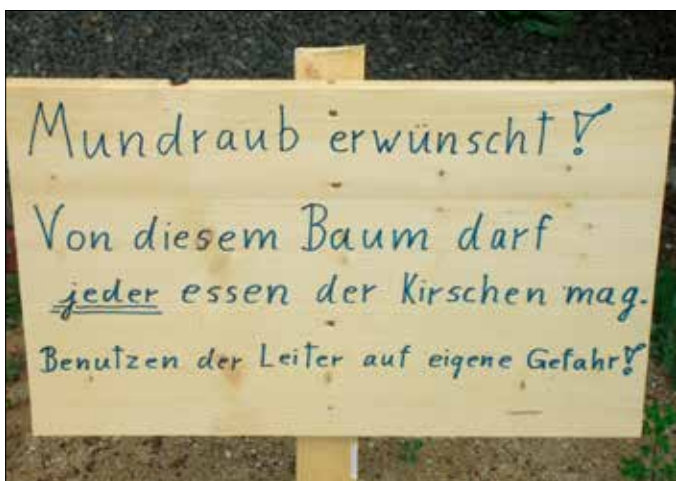 Mundraub erwünscht!
Von diesem Baum darf
jeder essen der Kirschen mag.
Benutzen der Leiter auf eigene Gefahr!